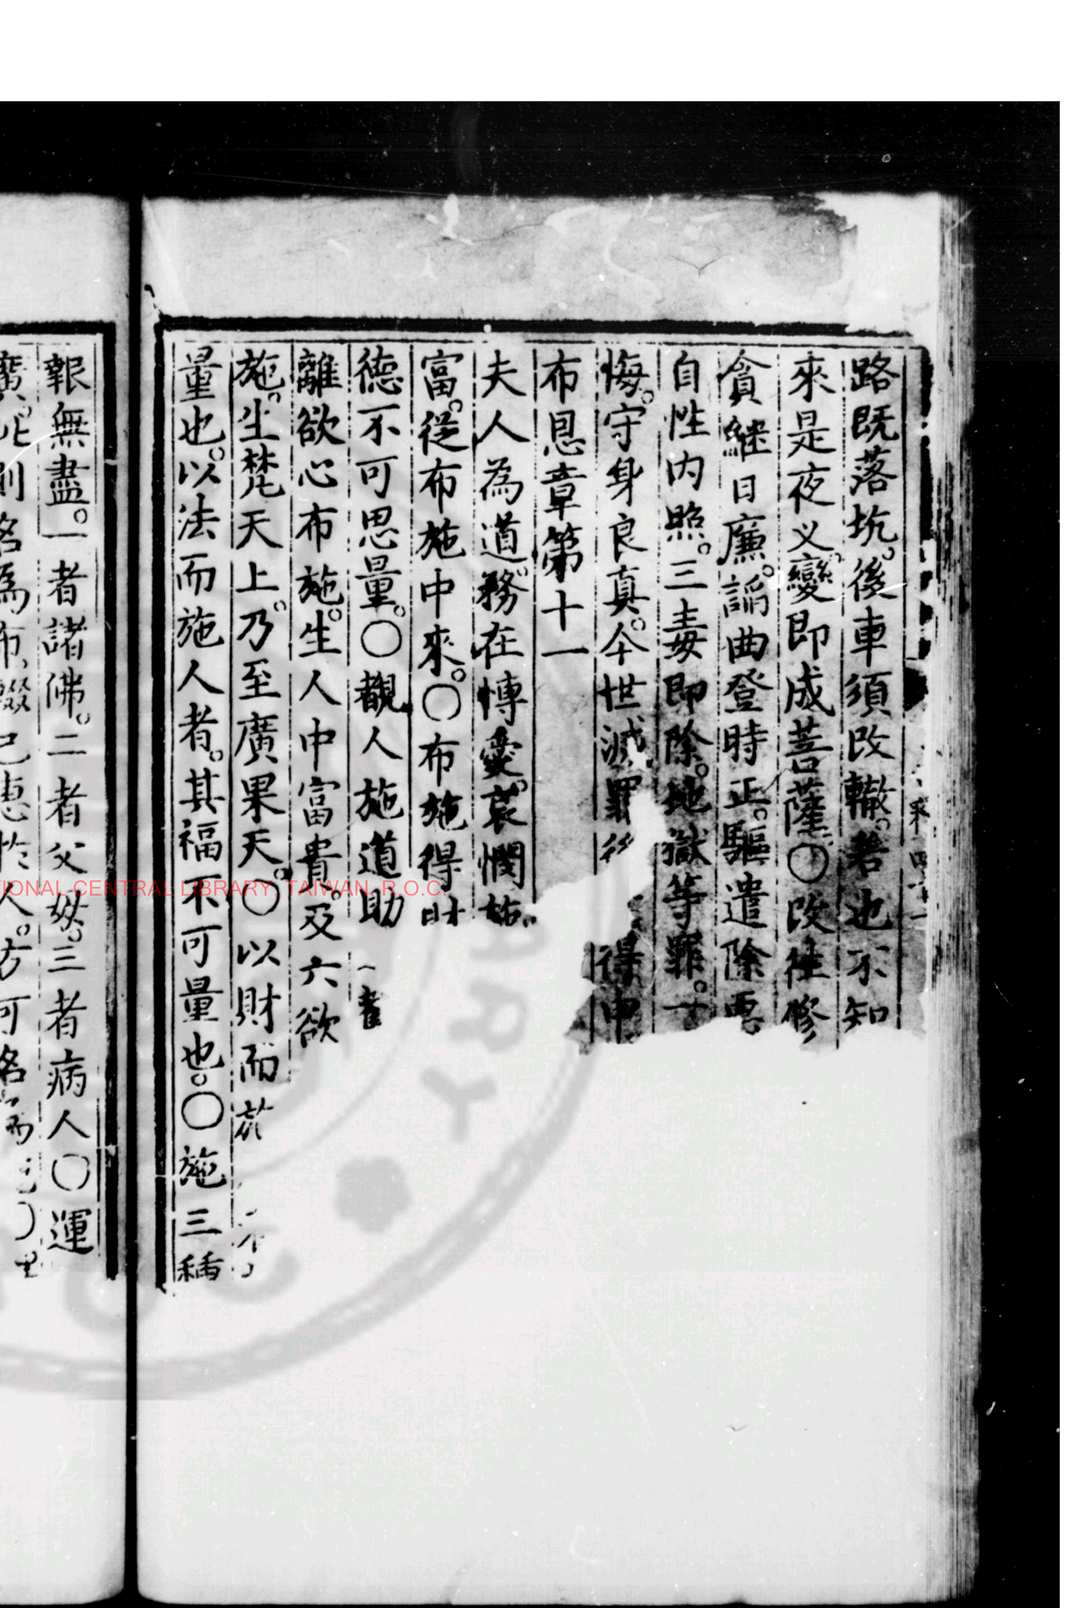 路既落坑。後車須改轍。若也不知
來是夜义。變即成菩薩。〇改往修
貪継日廉。謟曲登時正。驅遣除惡
自性内照。三毒即除。地獄等罪。一
悔。守身良真。今世滅罪後 得中
布恩章第十一
夫人為道。務在愽愛。哀憫
富。從布施中來。〇布施得財
德不可思量。〇覩人施道助
離欲心布施。生人中富貴。及六欲
施。生梵天上。乃至廣果天。〇以財而
量也。以法而施人者。其福不可量也。〇施三種
報無盡。一者諸佛。二者父母。三者病人〇運
NATIONAL CENTRAL LIBRARY, TAIWAN, R.O.C.